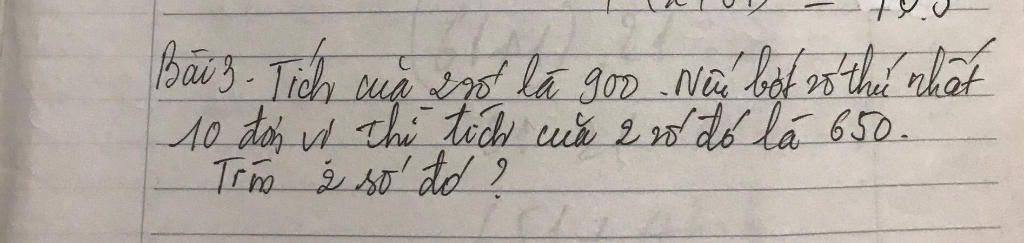 Bài 3. Tích của 2 số là 900. Nếu bớt số thứ nhất
10 đơn vị thì tích của 2 số đó là 650.
Tìm 2 số đó?